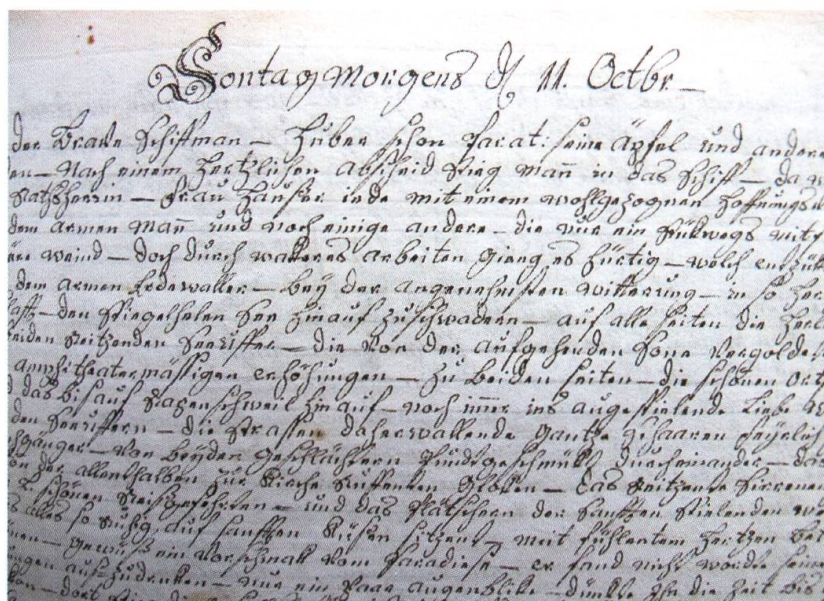 Sontag Morgens d 11. Octbr
der Brafe Schiffman – Huber schon parat: seine Äpfel und andere
en – Nach einem Hertzlichen abscheid stieg man in das Schiff – da w
Rathsherrin – Frau Hauser in de mit einem wohlgezognen Hoffnungs
dem armen Mañ und noch einige andere – die nur ein stükwegs mit
wind – doch durch wakeres arbeiten gieng es hurtig – welch entzük
dem armen Erdewaller – bey der angenehmsten witterung – in so her
den Spiegelhelen See hinauf zu schwadern – auf alle seiten die Herl
beiden Reitzenden Seeuffer – die von der aufgehenden Sone vergoldet
amphiteatermässigen erhöhungen – zu beiden seiten – die schönen ort
das bis auf hinauf – noch imer ins aug spielende liebe
den Seeuffern – die strassen daherwallende gantze schaaren feyrlich
gänger – von beyden geschlächtern buntgeschmükt durcheinander – das
on der allenthalben zur Kirche ruffenten Gloken – das Reitzende
schönen Reisgeferten – und das plätschern der sanfften spielenden w
alles so ruhig auf sanfften Küssen sitzent – mit füllentem Hertzen
gewüß ein vorschmak vom Paradiese – er fand nicht worte
auszudruken – nur ein Paar augenblike – dünkte Ihn die Zeit bis